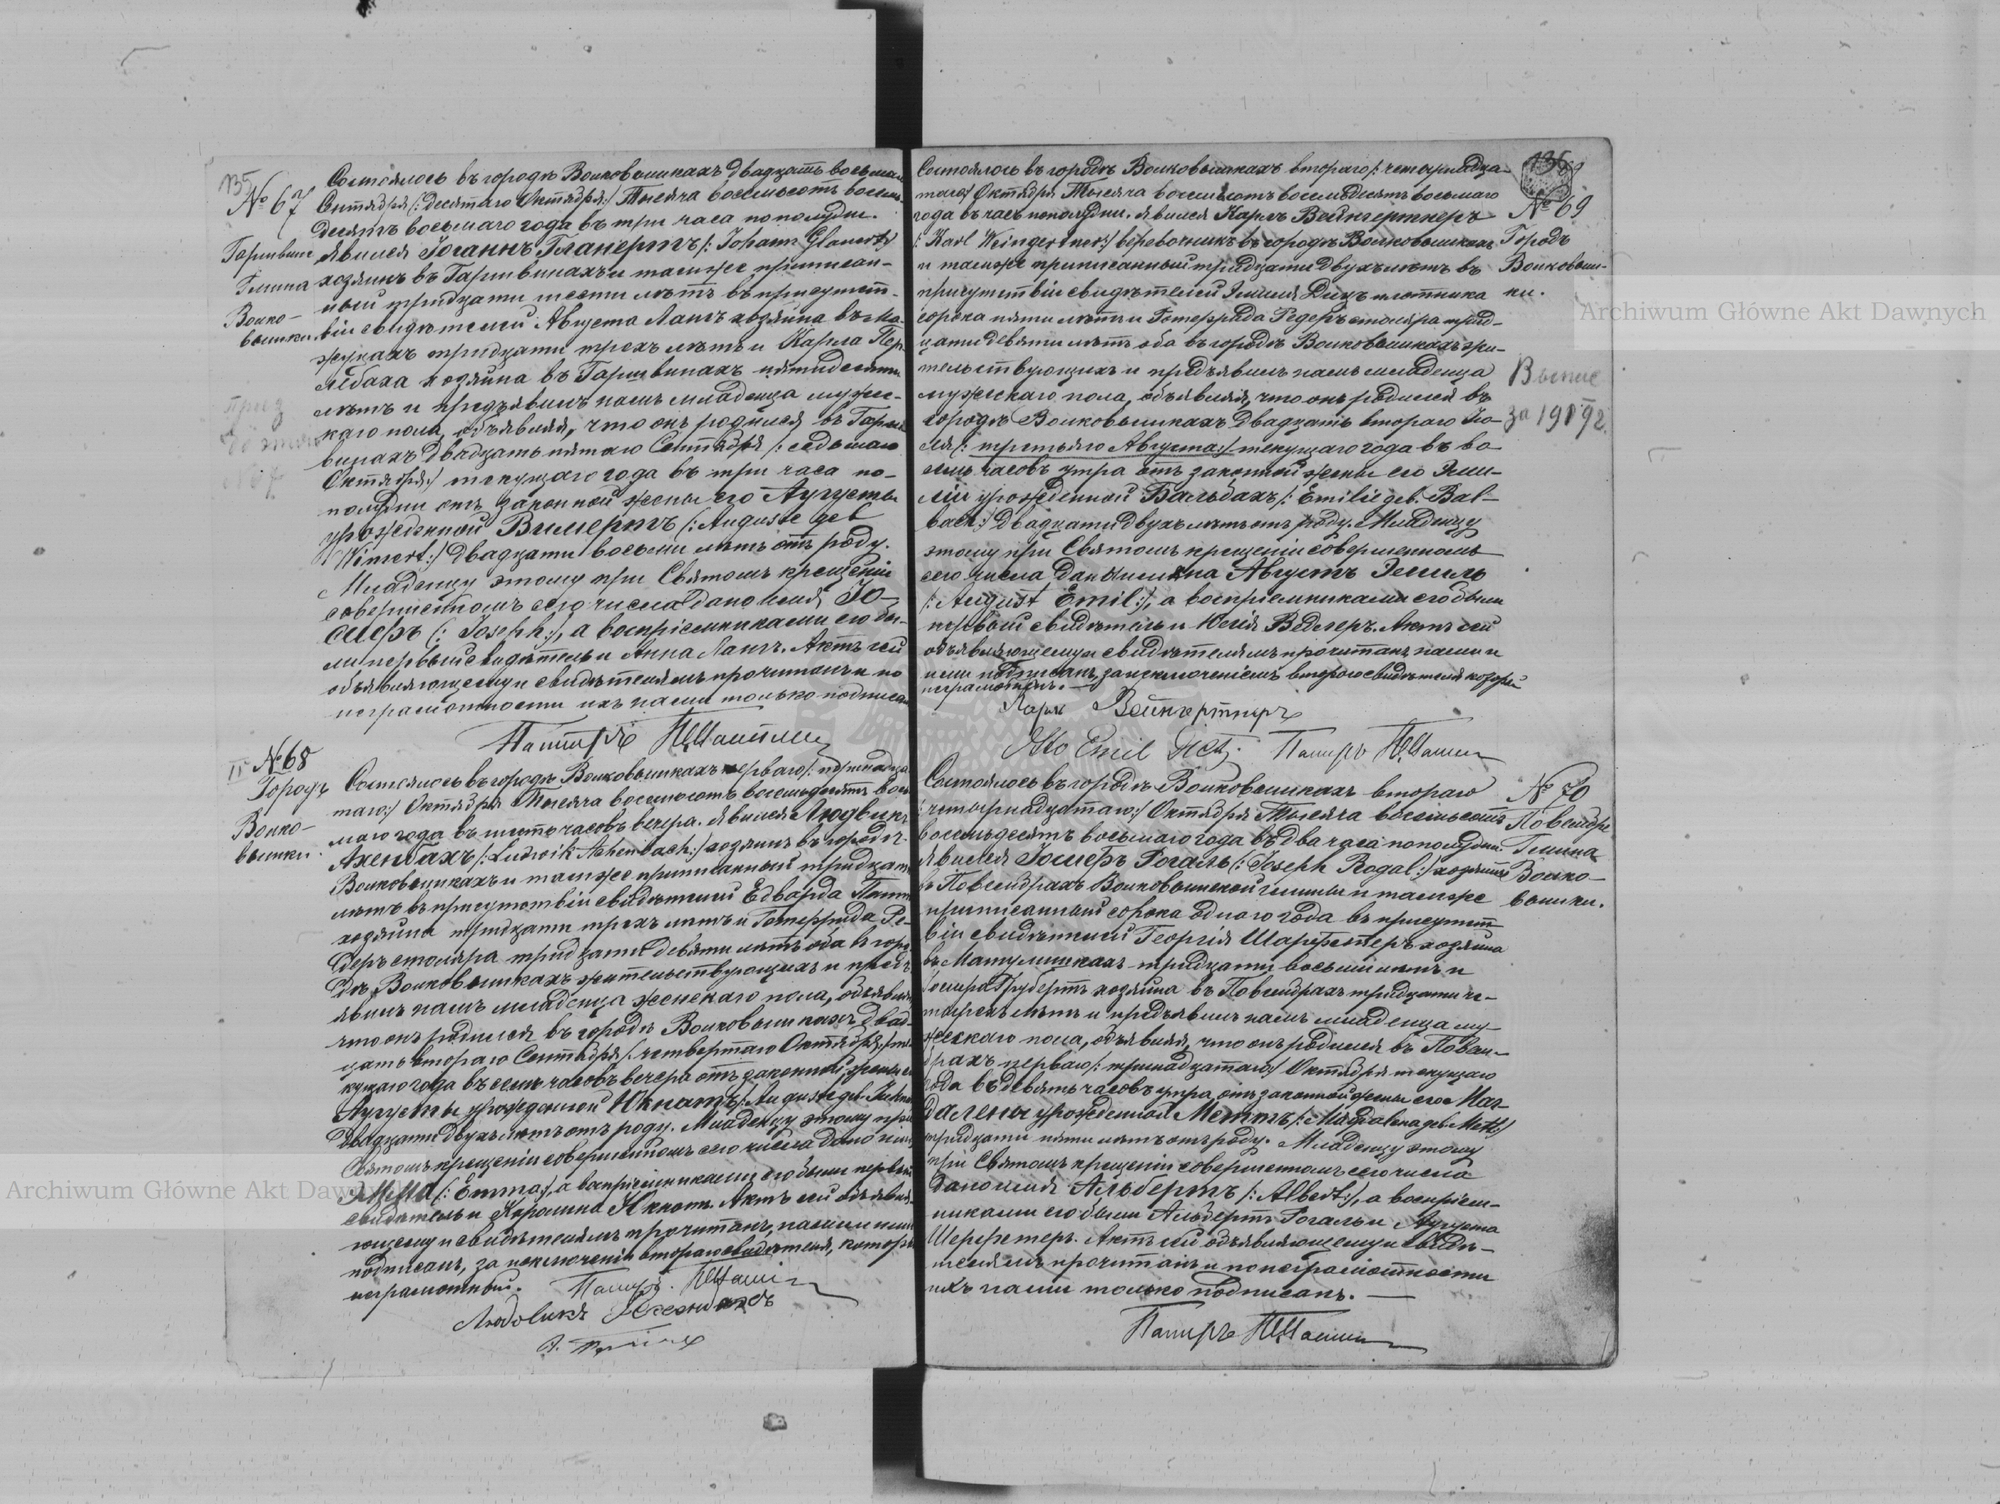 135
№ 67
Состоялось въ городѣ Волковышкахъ двадцать восьмаго
Сентября /: десятаго Октября :/ Тысяча восемьсотъ восемь-
десятъ восьмаго года въ три часа пополудни.
явился Іоганнъ Гланертъ /: Johann Glanert :/
хозяинъ въ и тамже приписан-
ный тридцати шести лѣтъ въ присутст-
Гмина
Волко-
вышки
віи свидѣтелей: Августа Лангъ хозяина въ Ма-
тридцати трехъ лѣтъ и Карла
хозяина въ пятидесяти
лѣтъ и предъявилъ намъ младенца мужес-
каго пола, объявляя, что онъ родился въ
двадцать пятаго Сентября /: седьмаго
Октября :/ текущаго года въ три часа по-
полудни отъ законной жены его Аугусты
урожденной Вимертъ /: Auguste geb
Wimert :/ двадцати восьми лѣтъ отъ роду.
Младенцу этому при Святомъ крещеніи
совершенномъ сего числа дано имя Іо-
сифъ /: Joseph :/, а воспріемниками его бы-
ли первый свидѣтель и Анна Лангъ. Актъ сей
объявляющему и свидѣтелямъ прочитанъ и по
неграмотности ихъ нами только подписанъ
Пасторъ
№ 68
Городъ
Волко-
вышки.
Состоялось въ городѣ Волковышкахъ перваго /: тринадца-
таго :/ Октября Тысяча восемьсотъ восемьдесятъ вось-
маго года въ шесть часовъ вечера. явился Людвикъ
Ахенбахъ /: Ludwik Achenbach :/ хозяинъ въ городѣ
Волковышкахъ и тамже приписанный тридцати
лѣтъ въ присутствіи свидѣтелей Едварда
хозяина тридцати трехъ лѣтъ и Готфрида Ре-
деръ столяра тридцати девяти лѣтъ оба въ горо-
дѣ Волковышкахъ жительствующихъ и предъ-
явилъ намъ младенца женскаго пола, объявляя
что онъ родился въ городѣ Волковышкахъ двад-
цать втораго Сентября /: четвертаго Октября :/ те-
кущаго года въ семь часовъ вечера отъ законной жены его
Аугусты урожденной /: Auguste geb.
двадцати двухъ лѣтъ отъ роду. Младенцу этому при
Святомъ крещеніи совершенномъ сего числа дано имя
Эмма /: Emma :/, а воспріемниками его были первый
свидѣтель и Каролина Актъ сей объявля-
ющему и свидѣтелямъ прочитанъ, нами и ими
подписанъ, за исключеніемъ втораго свидѣтеля, который
неграмотный. Пасторъ
Людвикъ Ахенбахъ
136
№ 69
Городъ
Волковыш-
ки.
Состоялось въ городѣ Волковышкахъ втораго /: четырнадца-
таго :/ Октября Тысяча восемьсотъ восемьдесятъ восьмаго
года въ часъ пополудни. явился Карлъ Вейнгертнеръ
/: Karl Weingertner :/ веревочникъ въ городѣ Волковышкахъ
и тамже приписанный тридцати двухъ лѣтъ въ
присутствіи свидѣтелей Эмиля Дицъ плотника
сорока пяти лѣтъ и Готфрида Редеръ столяра трид-
цати девяти лѣтъ оба въ городѣ Волковышкахъ жи-
тельствующихъ и предъявилъ намъ младенца
мужескаго пола, объявляя, что онъ родился въ
городѣ Волковышкахъ двадцать втораго Ію-
ля /: третьяго Августа :/ текущаго года въ во-
семь часовъ утра отъ законной жены его Эми-
ліи урожденной Бальбахъ /: Emilie geb. Bal-
bach :/ двадцати двухъ лѣтъ отъ роду. Младенцу
этому при Святомъ крещеніи совершенномъ
сего числа даны имена Августъ Эмиль
/: August Emil :/, а воспріемниками его были
первый свидѣтель и Юлія Ведлеръ. Актъ сей
объявляющему и свидѣтелямъ прочитанъ нами и
ими подписанъ, за исключеніемъ втораго свидѣтеля который
неграмотный. —
Карлъ Вейнгертнеръ
Emil Пасторъ
№ 70
Гмина
Волко-
вышки.
Состоялось въ городѣ Волковышкахъ втораго
/: четырнадцатаго :/ Октября Тысяча восемьсотъ
восемьдесятъ восьмаго года въ два часа пополудни.
явился Іосифъ Рогаль /: Joseph Rogal :/ хозяинъ
въ Волковышской гмины и тамже
приписанный сорока одного года въ присутст-
віи свидѣтелей Георгія хозяина
въ тридцати восьми лѣтъ и
хозяина въ тридцати че-
тырехъ лѣтъ и предъявилъ намъ младенца му-
жескаго пола, объявляя, что онъ родился въ
перваго /: тринадцатаго :/ Октября текущаго
года въ девять часовъ утра, отъ законной жены его Маг-
далены урожденной Меттъ /: Magdalena geb. Mett :/
тридцати пяти лѣтъ отъ роду. Младенцу этому
при Святомъ крещеніи совершенномъ сего числа
дано имя Альбертъ /: Albert :/, а воспріем-
никами его были Альбертъ Рогаль и Аугуста
Актъ сей объявляющему и свидѣ-
телямъ прочитанъ и по неграмотности
ихъ нами только подписанъ. —
Пасторъ
Archiwum Główne Akt Dawnych
Archiwum Główne Akt Dawnych